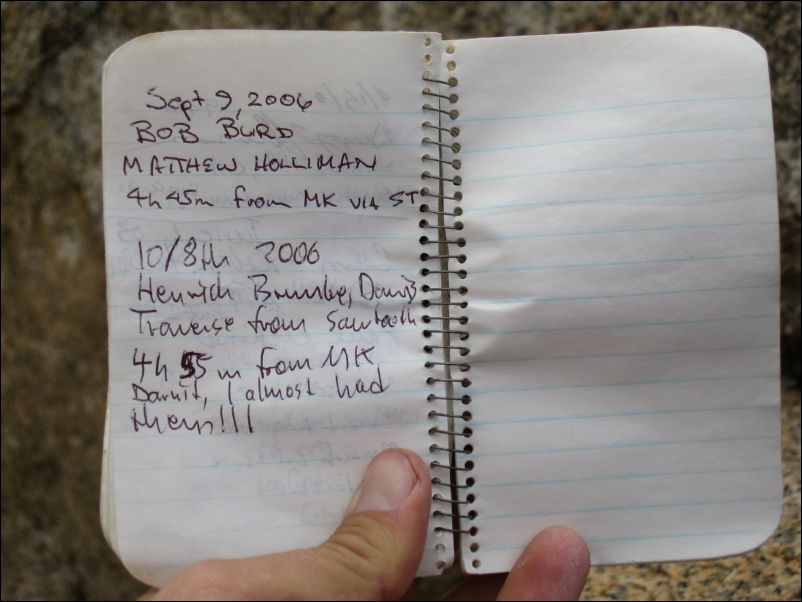 Sept 9, 2006
BOB BURD
MATTHEW HOLLIMAN
4h 45m from MK VIA ST
10/8th 2006
Henrich Davis
Traverse from Sawtooth
4h 55m from MK
Darnit, I almost had
them!!!